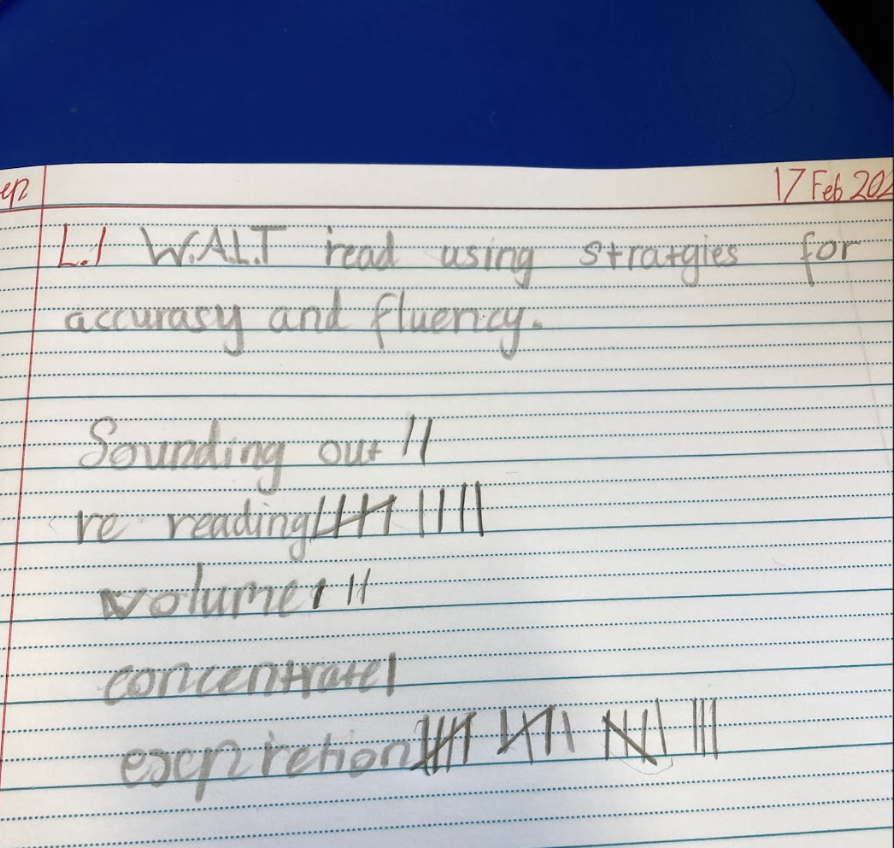 17 Feb 202
L.I W.A.L.T read using stratgies for
accurasy and fluency.
Sounding out ||
re reading |||| ||||
volume |||
concentrate |
escpiretion